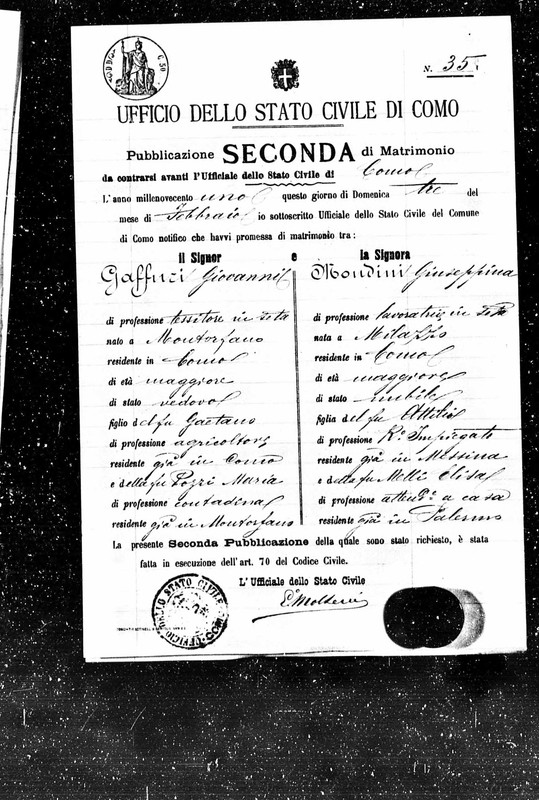 N. 35.
UFFICIO DELLO STATO CIVILE DI COMO
Pubblicazione SECONDA di Matrimonio
da contrarsi avanti l'Ufficiale dello Stato Civile di Como
L'anno millenovecento uno questo giorno di Domenica tre del
mese di Febbraio io sottoscritto Ufficiale dello Stato Civile del Comune
di Como notifico che havvi promessa di matrimonio tra:
il Signor e la Signora
Gaffuri Giovanni
di professione tessitore in seta
nato a Montorfano
residente in Como
di età maggiore
di stato vedovo
figlio del fu Gaetano
di professione agricoltore
residente già in Como
e della fu Pozzi Maria
di professione contadina
residente già in Montorfano
Mondini Giuseppina
di professione lavoratrice in seta
nata a Milazzo
residente in Como
di età maggiore
di stato nubile
figlia del fu Attilio
di professione R.º Impiegato
residente già in Messina
e della fu Melli Elisa
di professione attend.e a casa
residente già in Palermo
La presente Seconda Pubblicazione della quale sono stato richiesto, è stata
fatta in esecuzione dell'art. 70 del Codice Civile.
L'Ufficiale dello Stato Civile
UFFICIO DELLO STATO CIVILE COMO